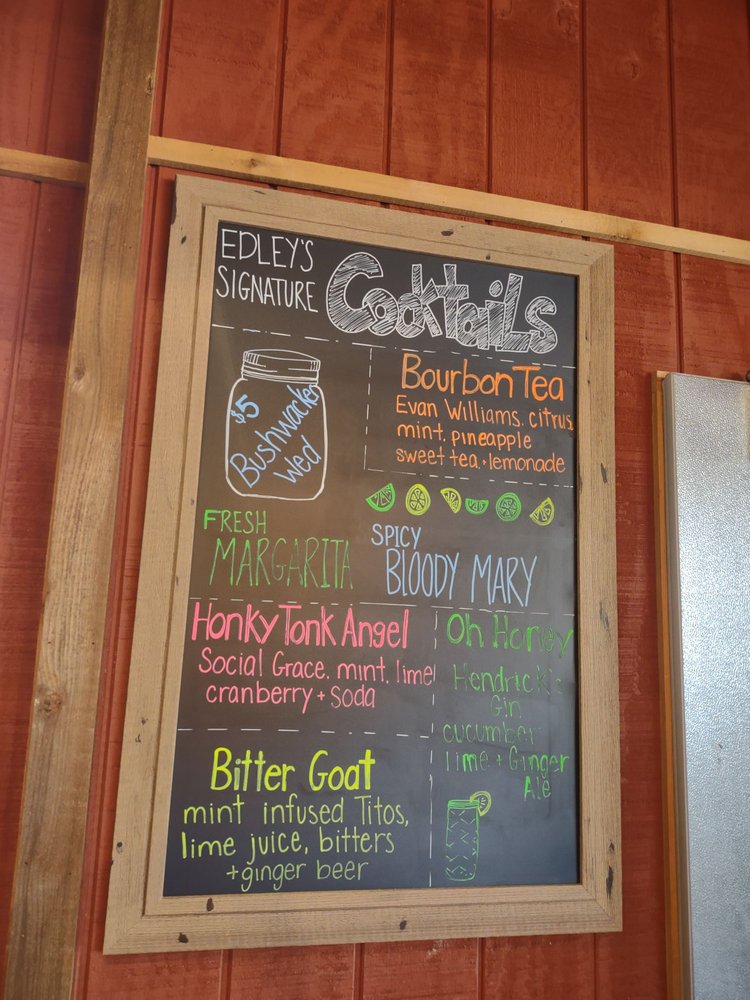 EDLEY'S
SIGNATURE
Cocktails
$5
Bushwacker
Wed
Bourbon Tea
Evan Williams, citrus,
mint, pineapple
sweet tea + lemonade
FRESH
MARGARITA
SPICY
BLOODY MARY
Honky Tonk Angel
Social Grace, mint, lime
cranberry + soda
Oh Honey
Hendrick's
Gin
cucumber
lime + Ginger
Ale
Bitter Goat
mint infused Titos,
lime juice, bitters
+ginger beer